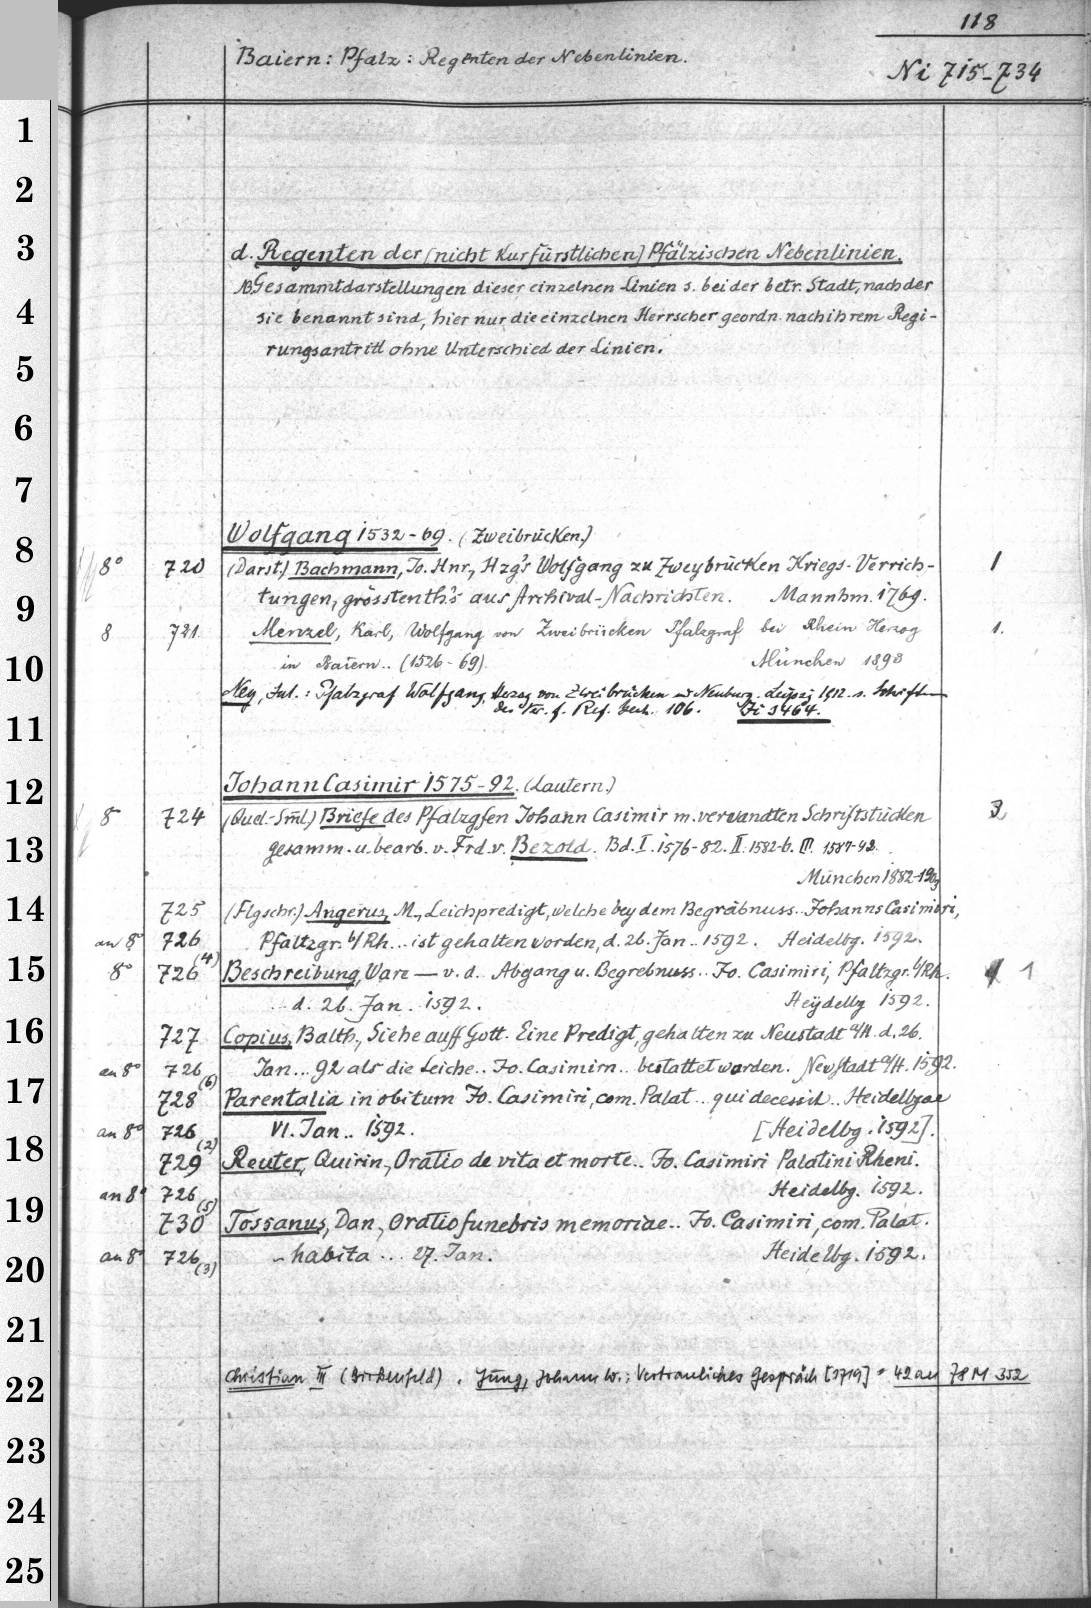 118
Baiern: Pfalz: Regenten der Nebenlinien.
Ni 715-734
1
2
3 d. Regenten der (nicht Kurfürstlichen) Pfälzischen Nebenlinien.
NB. Gesammtdarstellungen dieser einzelnen Linien s. bei der betr. Stadt, nach der
4 sie benannt sind, hier nur die einzelnen Herrscher geordn. nach ihrem Regi-
5 rungsantritt ohne Unterschied der Linien.
6
7
8 Wolfgang 1532-69. (Zweibrücken.)
8° 720 (Darst.) Bachmann, Jo. Hnr., Hzg's Wolfgang zu Zweybrücken Kriegs-Verrich- 1
9 tungen, grösstenth's aus Archival-Nachrichten. Mannhm. 1769.
8 721. Menzel, Karl, Wolfgang von Zweibrücken Pfalzgraf bei Rhein Herzog 1.
10 in Baiern.. (1526-69). München 1893
Ney, Jul.: Pfalzgraf Wolfgang, Herzog von Zweibrücken und Neuburg. Leipzig 1912. s. Schriften
des Ver. f. Ref. Gesch. 106. Zi 3464.
11
12 Johann Casimir 1575-92. (Lautern.)
8° 724 (Quel.-Sml.) Briefe des Pfalzgfen Johann Casimir m. verwandten Schriftstücken 3
13 gesamm. u. bearb. v. Frd. v. Bezold. Bd. I. 1576-82. II. 1582-6. III. 1587-92.
München 1882-1903
14 725 (Flgschr.) Angerus, M., Leichpredigt, welche bey dem Begräbnuss.. Johanns Casimiri,
an 8° 726(4) Pfaltzgr. b/Rh... ist gehalten worden, d. 26. Jan.. 1592. Heidelbg. 1592.
15 8° 726 Beschreibung, Ware — v. d. Abgang u. Begrebnuss.. Jo. Casimiri, Pfaltzgr. b/Rh. 1
.. d. 26. Jan. 1592. Heydelbg 1592.
16 727 Copius, Balth., Siehe auff Gott. Eine Predigt, gehalten zu Neustadt a/H. d. 26.
an 8° 726(6) Jan... 92 als die Leiche.. Jo. Casimirn.. bestattet worden. Newstadt a/H. 1592.
17 728 Parentalia in obitum Jo. Casimiri, com. Palat.. qui decessit.. Heidelbgae
an 8° 726(2) VI. Jan.. 1592. [Heidelbg. 1592].
18 729 Reuter, Quirin., Oratio de vita et morte.. Jo. Casimiri Palatini Rheni.
an 8° 726(5) Heidelbg. 1592.
19 730 Tossanus, Dan., Oratio funebris memoriae.. Jo. Casimiri, com. Palat.
an 8° 726(3) .. habita ... 27. Jan. Heidelbg. 1592.
20
21
22 Christian III (Birkenfeld). Jung, Johann W.: Vertrauliches Gespräch [1719] = 42 an 78 M 352
23
24
25